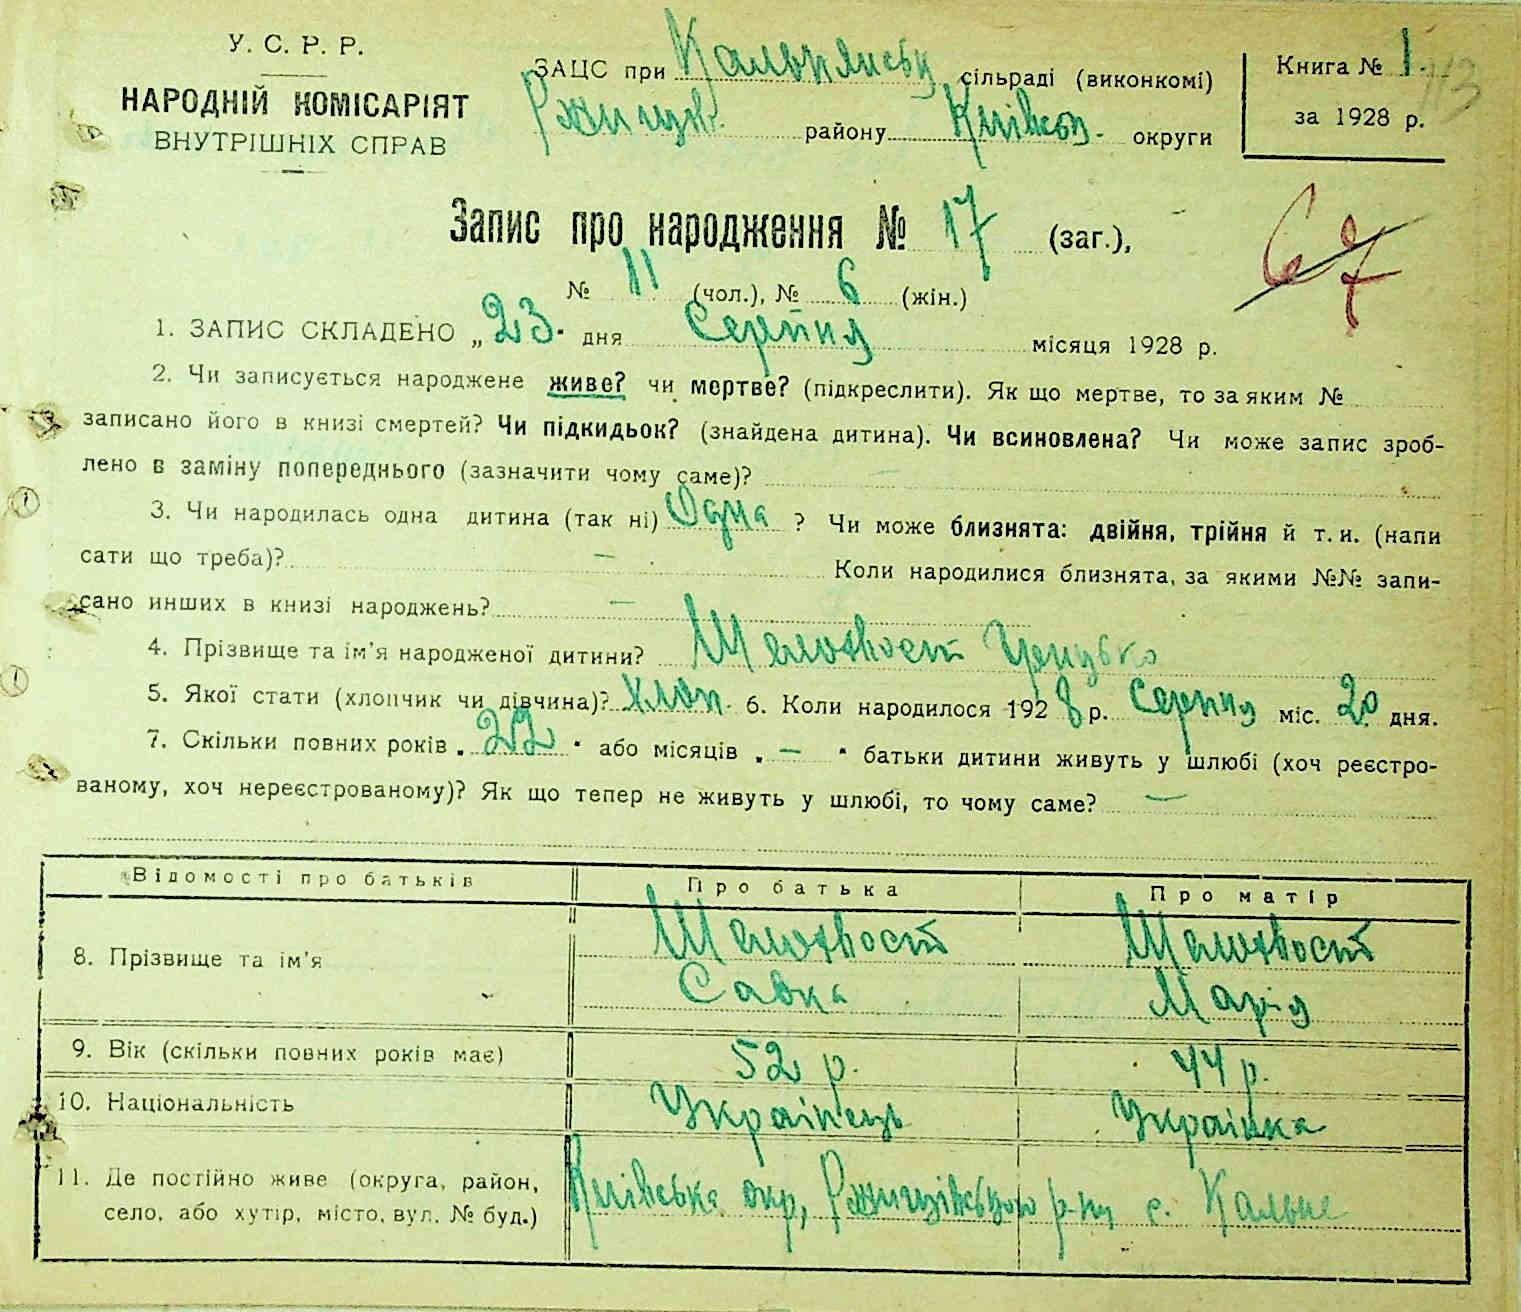 У. С. Р. Р.
НАРОДНІЙ КОМІСАРІЯТ
ВНУТРІШНІХ СПРАВ
ЗАЦС при Кальнянськ. сільраді (виконкомі)
Ржищів. району Київськ. округи
Книга № 1
за 1928 р.
113
Запис про народження № 17 (заг.),
67
№ 11 (чол.), № 6 (жін.)
1. ЗАПИС СКЛАДЕНО „23" дня Серпня місяця 1928 р.
2. Чи записується народжене живе? чи мертве? (підкреслити). Як що мертве, то за яким №
записано його в книзі смертей? Чи підкидьок? (знайдена дитина). Чи всиновлена? Чи може запис зроб-
лено в заміну попереднього (зазначити чому саме)? —
3. Чи народилась одна дитина (так ні) Одна ? Чи може близнята: двійня, трійня й т. и. (напи
сати що треба)? — Коли народилися близнята, за якими №№ запи-
сано инших в книзі народжень? —
4. Прізвище та ім'я народженої дитини? Шелохвост
5. Якої стати (хлопчик чи дівчина)? хлоп. 6. Коли народилося 1928 р. Серпня міс. 20 дня.
7. Скільки повних років „22" або місяців „—" батьки дитини живуть у шлюбі (хоч реєстро-
ваному, хоч нереєстрованому)? Як що тепер не живуть у шлюбі, то чому саме? —
Відомості про батьків Про батька Про матір
8. Прізвище та ім'я Шелохвост Савка Шелохвост Марія
9. Вік (скільки повних років має) 52 р. 44 р.
10. Національність Українець Українка
11. Де постійно живе (округа, район,
село, або хутір, місто, вул. № буд.) Київська окр, Ржищівського р-ну с. Кальне